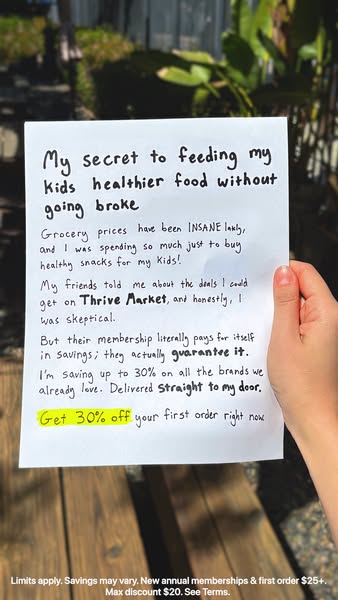 My secret to feeding my
kids healthier food without
going broke
Grocery prices have been INSANE lately,
and I was spending so much just to buy
healthy snacks for my kids!
My friends told me about the deals I could
get on Thrive Market, and honestly, I
was skeptical.
But their membership literally pays for itself
in savings; they actually guarantee it.
I'm saving up to 30% on all the brands we
already love. Delivered straight to my door.
Get 30% off your first order right now
Limits apply. Savings may vary. New annual memberships & first order $25+.
Max discount $20. See Terms.